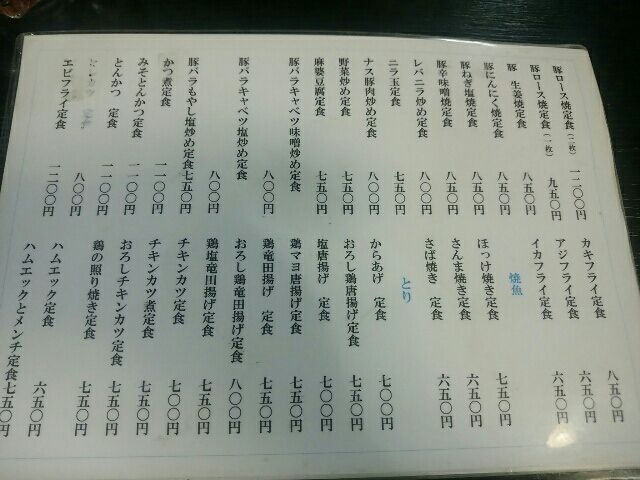 豚ロース焼定食(二枚) 一二〇〇円
豚ロース焼定食(一枚) 九五〇円
豚 生姜焼定食 八五〇円
豚にんにく焼定食 八五〇円
豚ねぎ塩焼定食 八五〇円
豚辛味噌焼定食 八五〇円
レバニラ炒め定食 八〇〇円
ニラ玉定食 七五〇円
ナス豚肉炒め定食 八〇〇円
野菜炒め定食 七五〇円
麻婆豆腐定食 七五〇円
豚バラキャベツ味噌炒め定食 八〇〇円
豚バラキャベツ塩炒め定食 八〇〇円
豚バラもやし塩炒め定食 七五〇円
かつ煮定食 一一〇〇円
みそとんかつ定食 一一〇〇円
とんかつ 定食 一一〇〇円
定食 八〇〇円
エビフライ定食 一二〇〇円
カキフライ定食 八五〇円
アジフライ定食 六五〇円
イカフライ定食 六五〇円
焼魚
ほっけ焼き定食 七五〇円
さんま焼き定食 六五〇円
さば焼き 定食 六五〇円
とり
からあげ 定食 七〇〇円
おろし鶏唐揚げ定食 七五〇円
塩唐揚げ 定食 七〇〇円
鶏マヨ唐揚げ定食 七五〇円
鶏竜田揚げ 定食 七五〇円
おろし鶏竜田揚げ定食 八〇〇円
鶏塩竜田揚げ定食 七五〇円
チキンカツ定食 七〇〇円
チキンカツ煮定食 七五〇円
おろしチキンカツ定食 七五〇円
鶏の照り焼き定食 七五〇円
ハムエック定食 六五〇円
ハムエックとメンチ定食 七五〇円